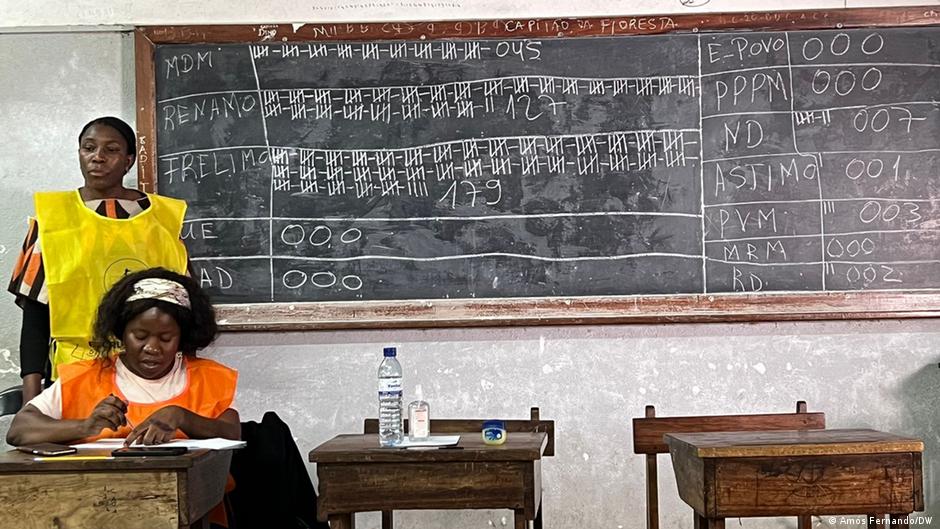 CAPITÃO DA FLORESTA
MDM 045
RENAMO 127
FRELIMO 179
UE 000
AD 000
E-POVO 000
PPPM 000
ND 007
ASTIMO 001
PVM 003
MRM 000
RD 002
© Amos Fernando/DW